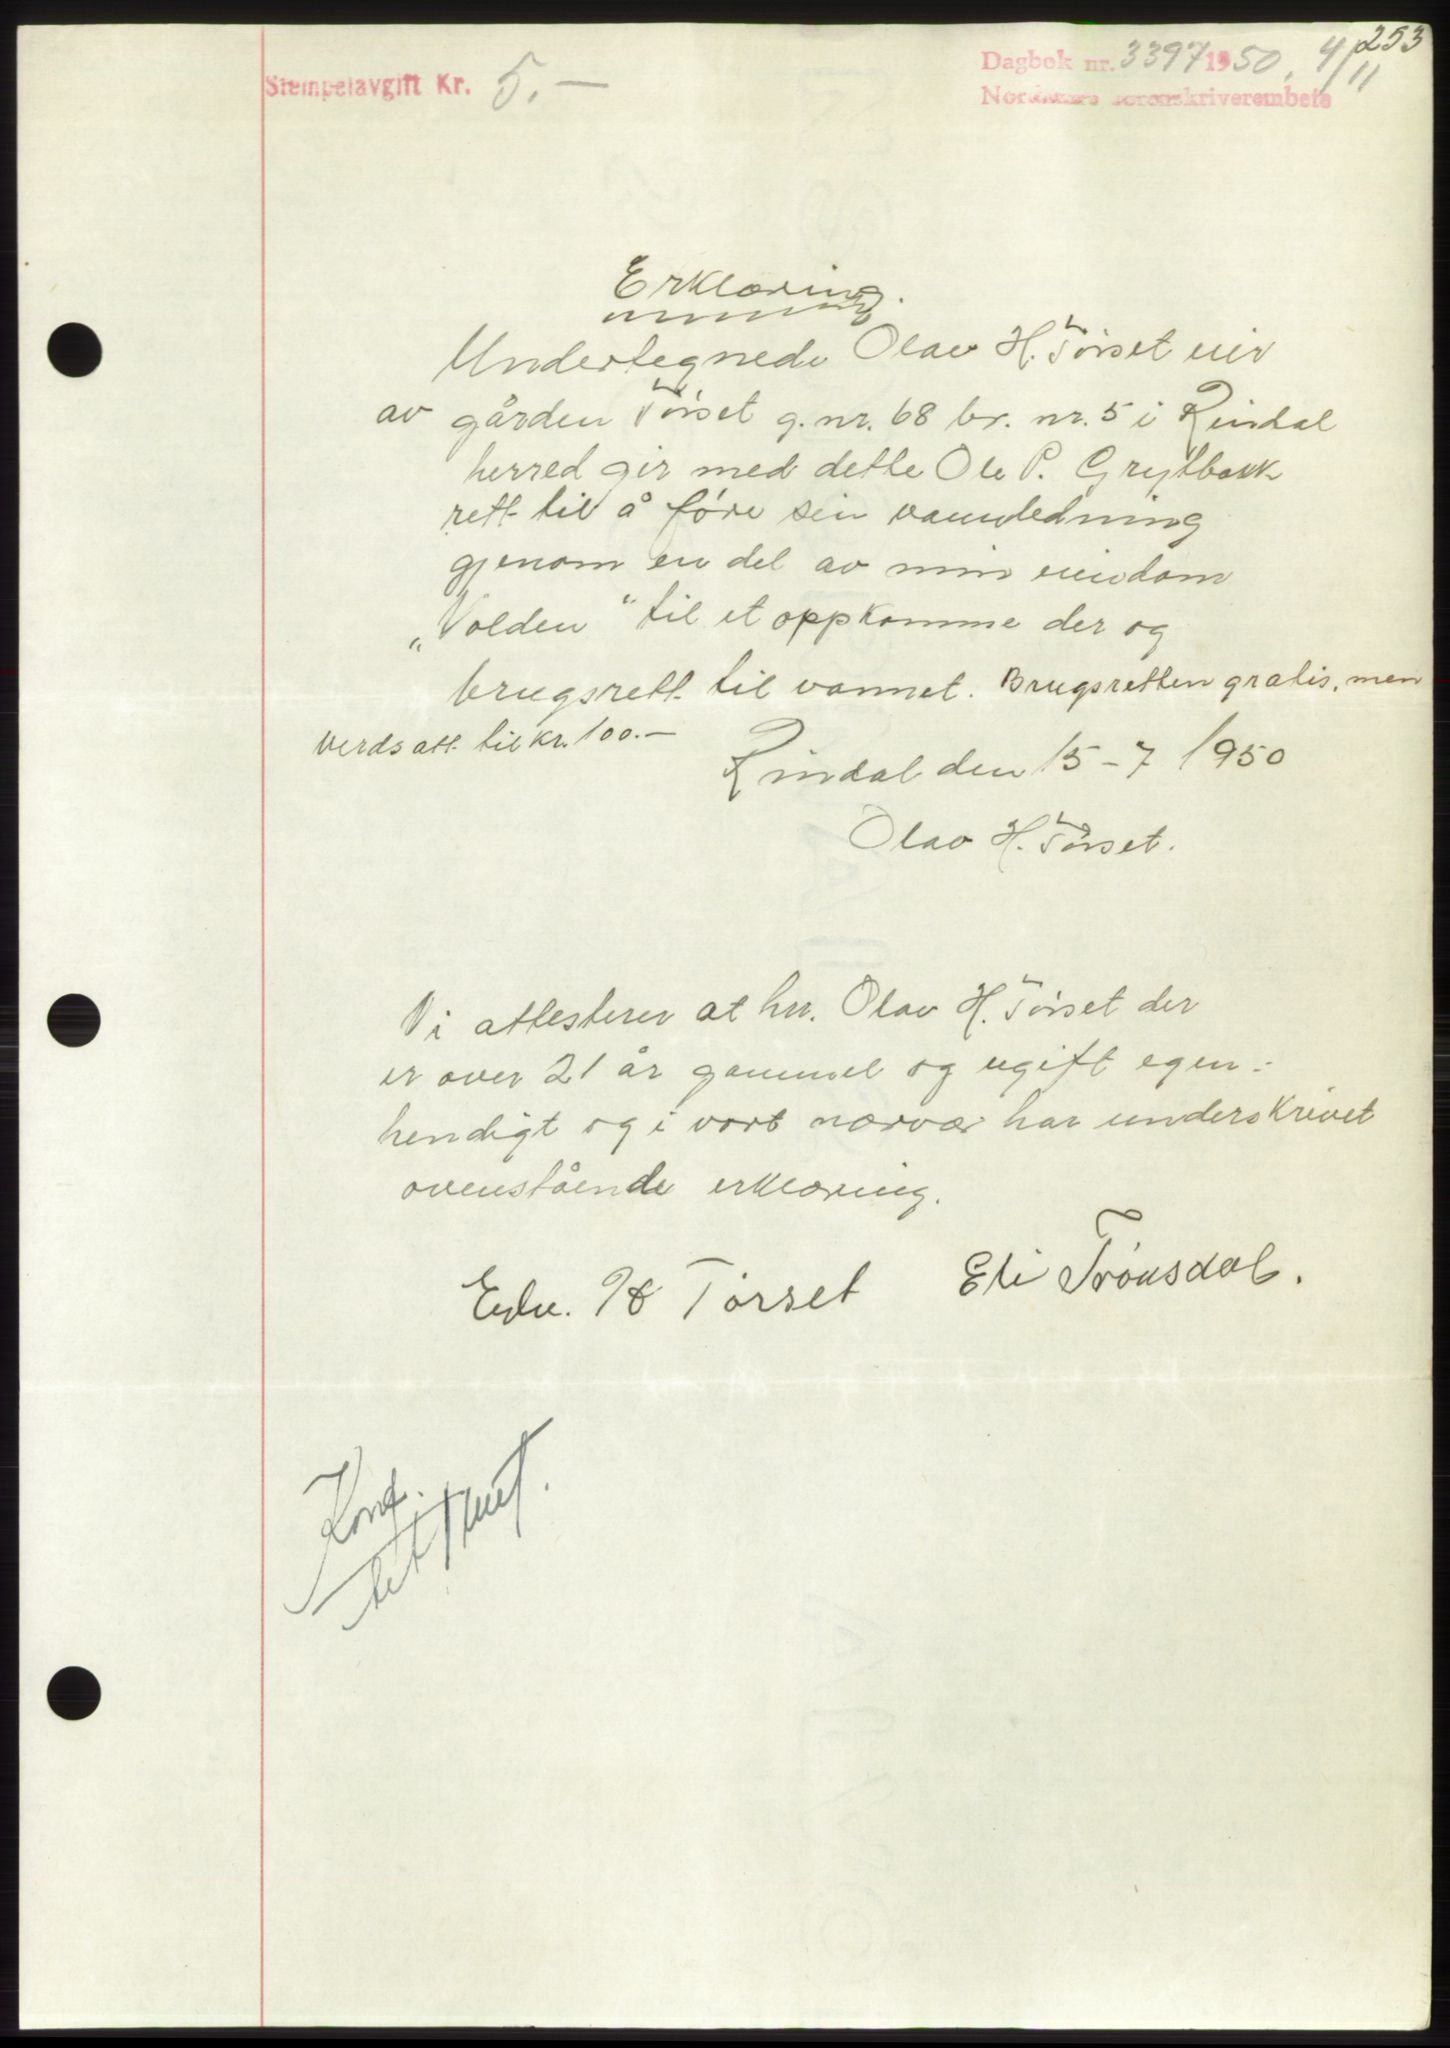 253
Stempelavgift Kr. 5.—
Dagbok nr. 3397 1950, 4/11
Nordmøre sorenskriverembete
Erklæring.
Undertegnede Olav H. Tørset eier
av gården Tørset g.nr. 68 br. nr. 5 i Rindal
herred gir med dette Ole P. Grytbakk
rett til å føre sin vannledning
gjenom en del av min eiendom
„Volden" til et oppkomme der og
brugsrett til vannet. Brugsretten gratis, men
verdsatt til kr. 100.—
Rindal den 15-7 1950
Olav H. Tørset.
Vi attesterer at hr. Olav H. Tørset der
er over 21 år gammel og ugift egen-
hendigt og i vort nærvær har underskrivet
ovenstående erklæring.
Edv. H Tørset Eli Trønsdal.
Konf.